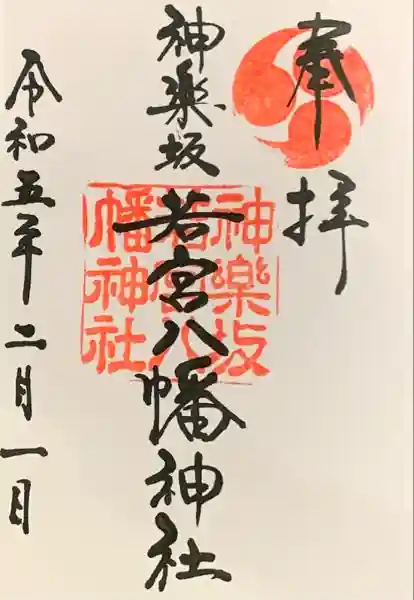 奉拝
神楽坂
若宮八幡神社
神楽坂
若宮八
幡神社
令和五年二月一日